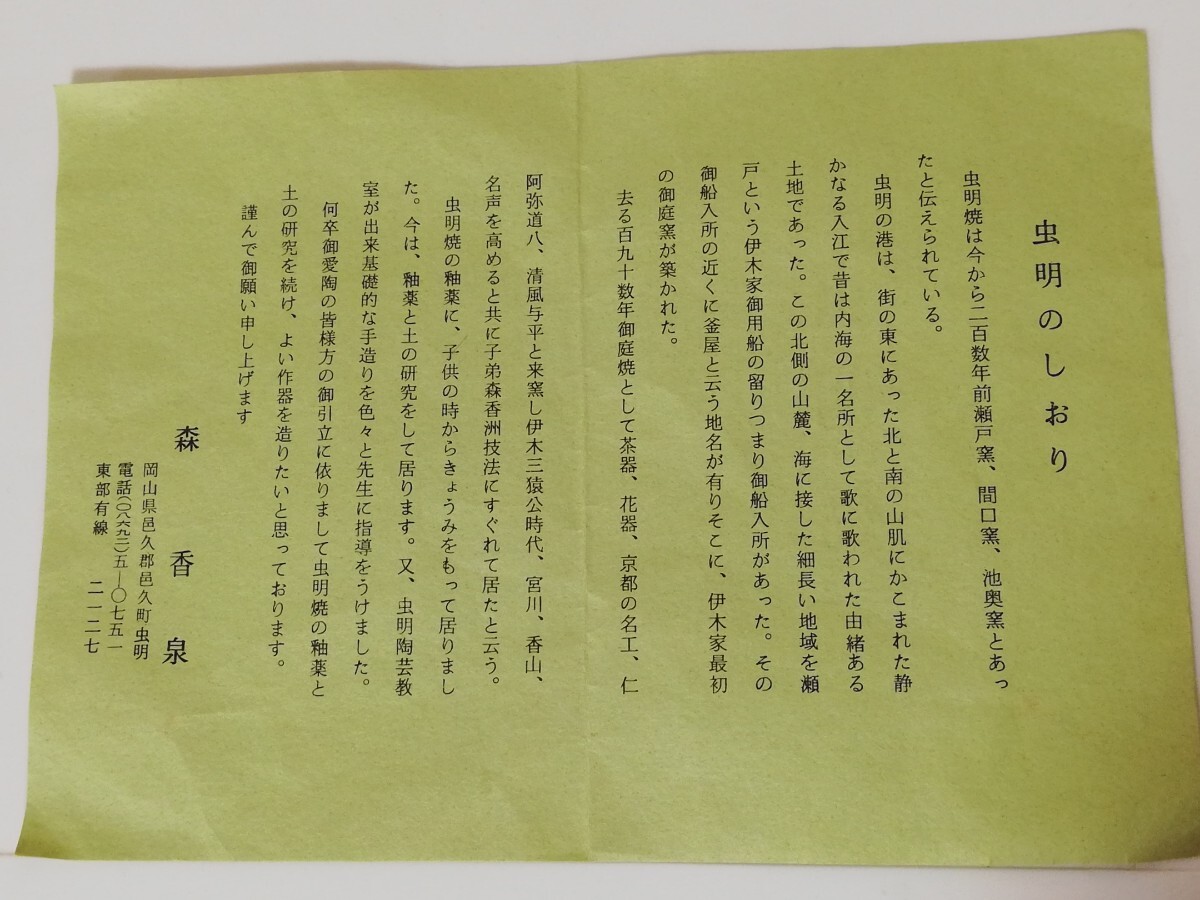 虫明のしおり
虫明焼は今から二百数年前瀬戸窯、間口窯、池奥窯とあっ
たと伝えられている。
虫明の港は、街の東にあった北と南の山肌にかこまれた静
かなる入江で昔は内海の一名所として歌に歌われた由緒ある
土地であった。この北側の山麓、海に接した細長い地域を瀬
戸という伊木家御用船の留りつまり御船入所があった。その
御船入所の近くに釜屋と云う地名が有りそこに、伊木家最初
の御庭窯が築かれた。
去る百九十数年御庭焼として茶器、花器、京都の名工、仁
阿弥道八、清風与平と来窯し伊木三猿公時代、宮川、香山、
名声を高めると共に子弟森香洲技法にすぐれて居たと云う。
虫明焼の釉薬に、子供の時からきょうみをもって居りまし
た。今は、釉薬と土の研究をして居ります。又、虫明陶芸教
室が出来基礎的な手造りを色々と先生に指導をうけました。
何卒御愛陶の皆様方の御引立に依りまして虫明焼の釉薬と
土の研究を続け、よい作器を造りたいと思っております。
謹んで御願い申し上げます
森香泉
岡山県邑久郡邑久町虫明
電話(〇八六九二)五―〇七五一
東部有線 二一二七